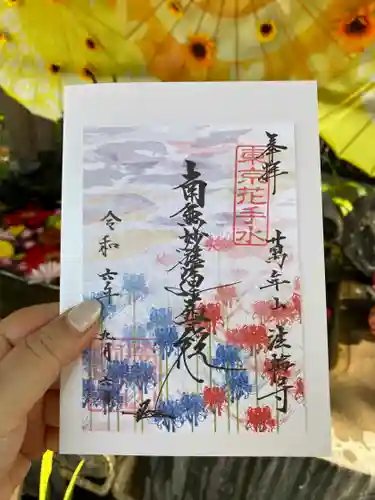 奉拝
東京花手水
萬年山 法梅寺
南無妙法蓮華経
令和六年九月六日